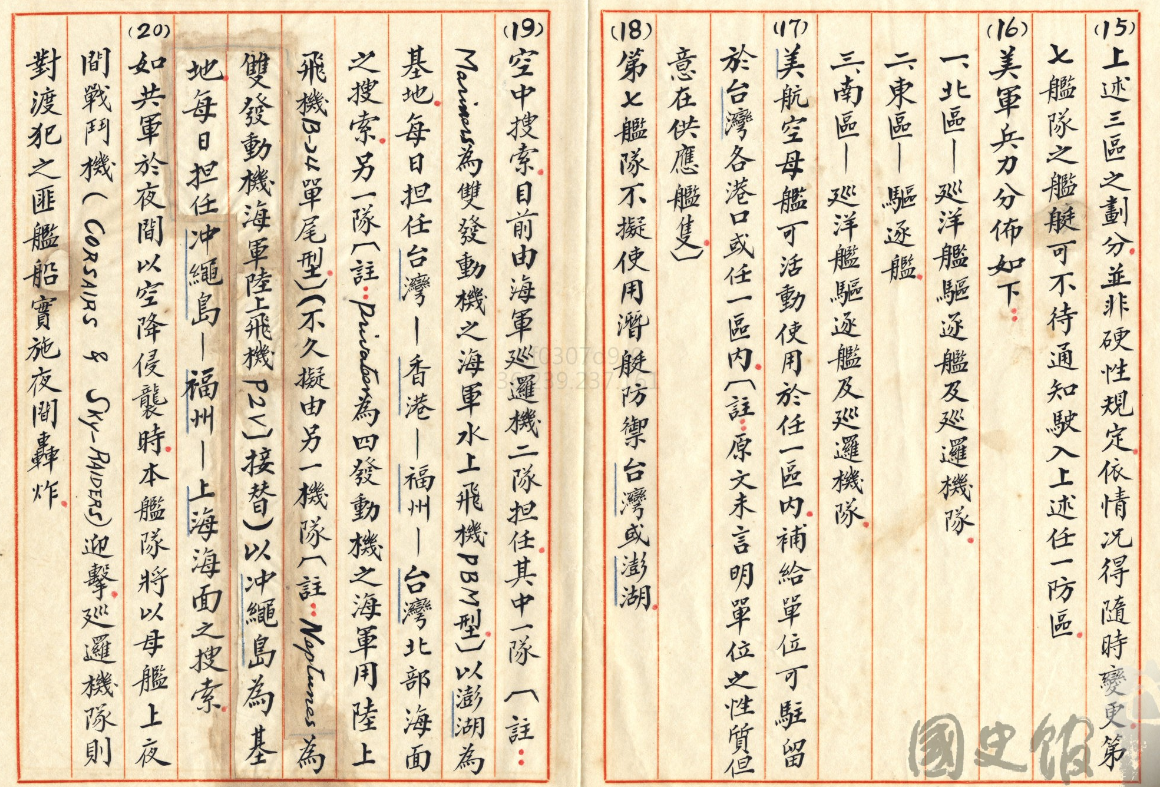 (15)上述三區之劃分並非硬性規定依情況得隨時變更第
七艦隊之艦艇可不待通知駛入上述任一防區
(16)美軍兵力分佈如下：
一、北區—巡洋艦驅逐艦及巡邏機隊
二、東區—驅逐艦
三、南區—巡洋艦驅逐艦及巡邏機隊
(17)美航空母艦可活動使用於任一區內補給單位可駐留
於台灣各港口或任一區內〔註：原文未言明單位之性質但
意在供應艦隻〕
(18)第七艦隊不擬使用潛艇防禦台灣或澎湖
(19)空中搜索目前由海軍巡邏機二隊担任其中一隊〔註：
Mariners為雙發動機之海軍水上飛機PBM型〕以澎湖為
基地每日担任台灣—香港—福州—台灣北部海面
之搜索另一隊〔註：Privateers為四發動機之海軍用陸上
飛機B-24單尾型〕(不久擬由另一機隊〔註：Neptunes為
雙發動機海軍陸上飛機P2V〕接替)以冲繩島為基
地每日担任冲繩島—福州—上海海面之搜索
(20)如共軍於夜間以空降侵襲時本艦隊將以母艦上夜
間戰鬥機(CORSAIRS & SKY-RAIDERS)迎擊巡邏機隊則
對渡犯之匪艦船實施夜間轟炸
國史館